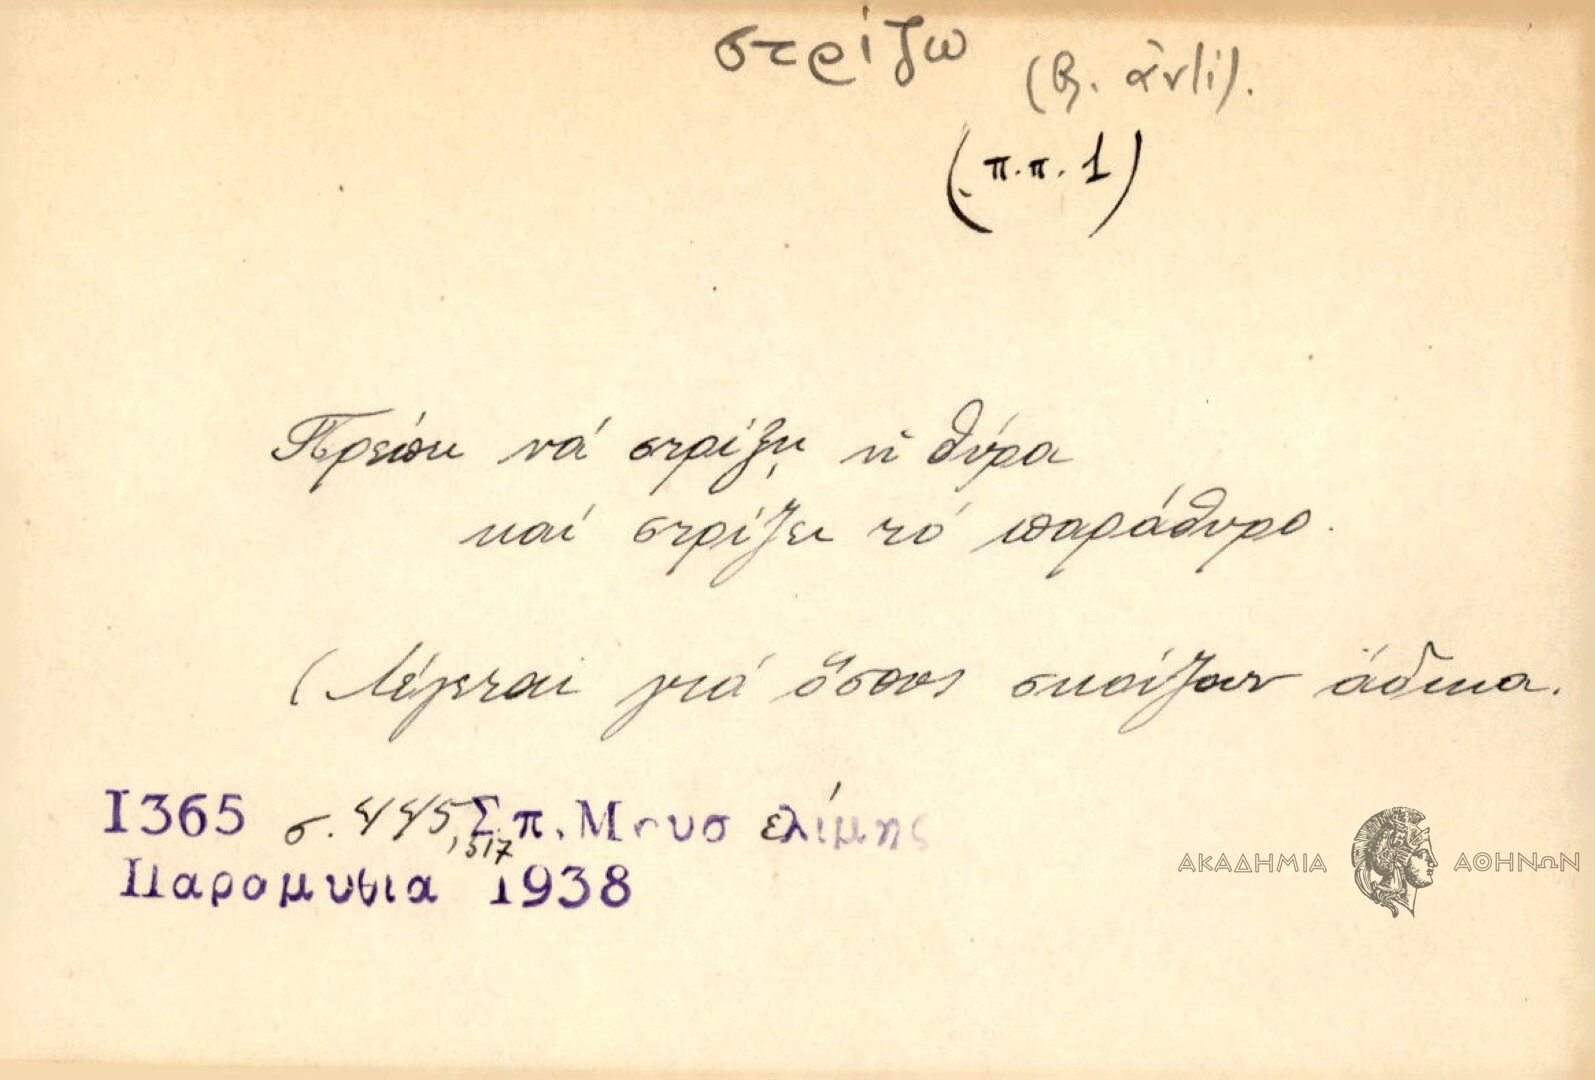 στρίζω
(β. ἀντί).
(π.π. 1)
Πρέπει νά στρίξῃ ἡ θύρα
καί στρίζει τό παράθυρο.
(Λέγεται γιά ὅσους σκούζουν ἄδικα.
1365 σ. 445, 517 Σπ. Μουσελίμης
Παραμυθια 1938
ΑΚΑΔΗΜΙΑ ΑΘΗΝΩΝ